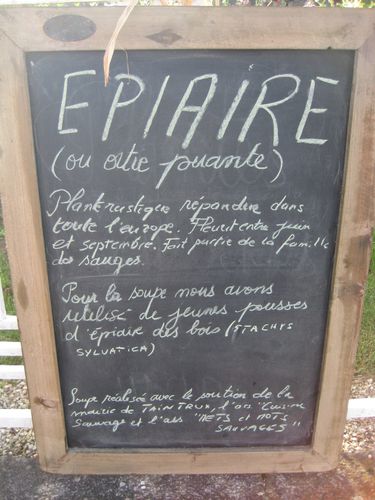 EPIAIRE
(ou ortie puante)
Plante rustique répandue dans
toute l'europe. Fleurit entre juin
et septembre. Fait partie de la famille
des sauges.
Pour la soupe nous avons
utilisé de jeunes pousses
d'épiaire des bois (STACHYS
SYLVATICA)
Soupe réalisée avec le soutien de la
mairie de TAINTRUX, l'ass "Cuisine
Sauvage et l'ass "METS et MOTS
SAUVAGES"